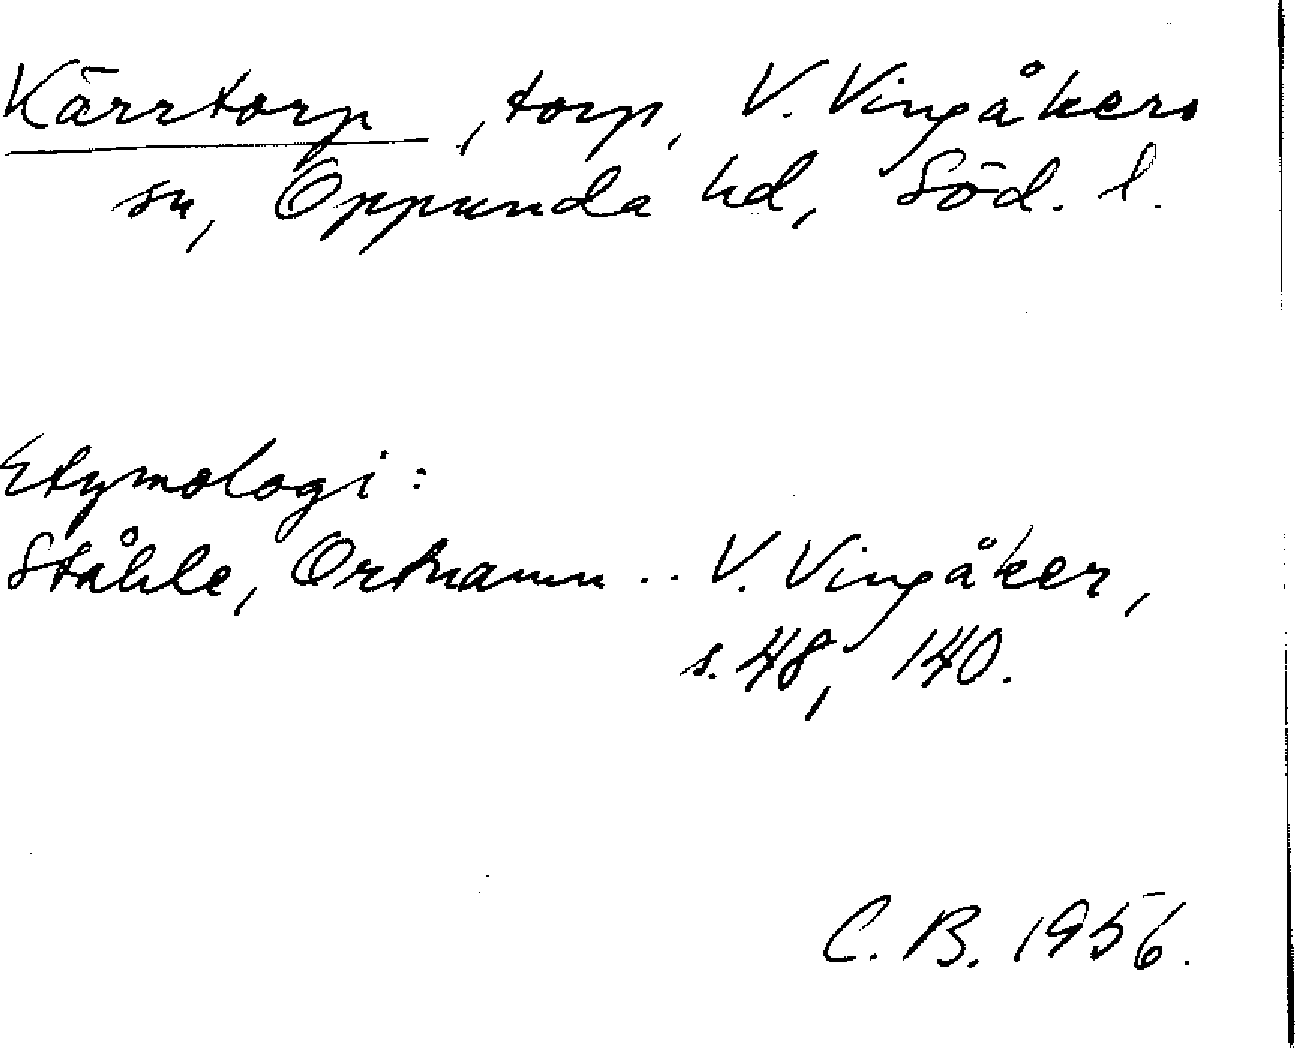 Kärrtorp, torp, V. Vingåkers
sn, Oppunda hd, Söd. l.
Etymologi:
Ståhle, Ortnamn .. V. Vingåker,
s. 48, 140.
C. B. 1956.